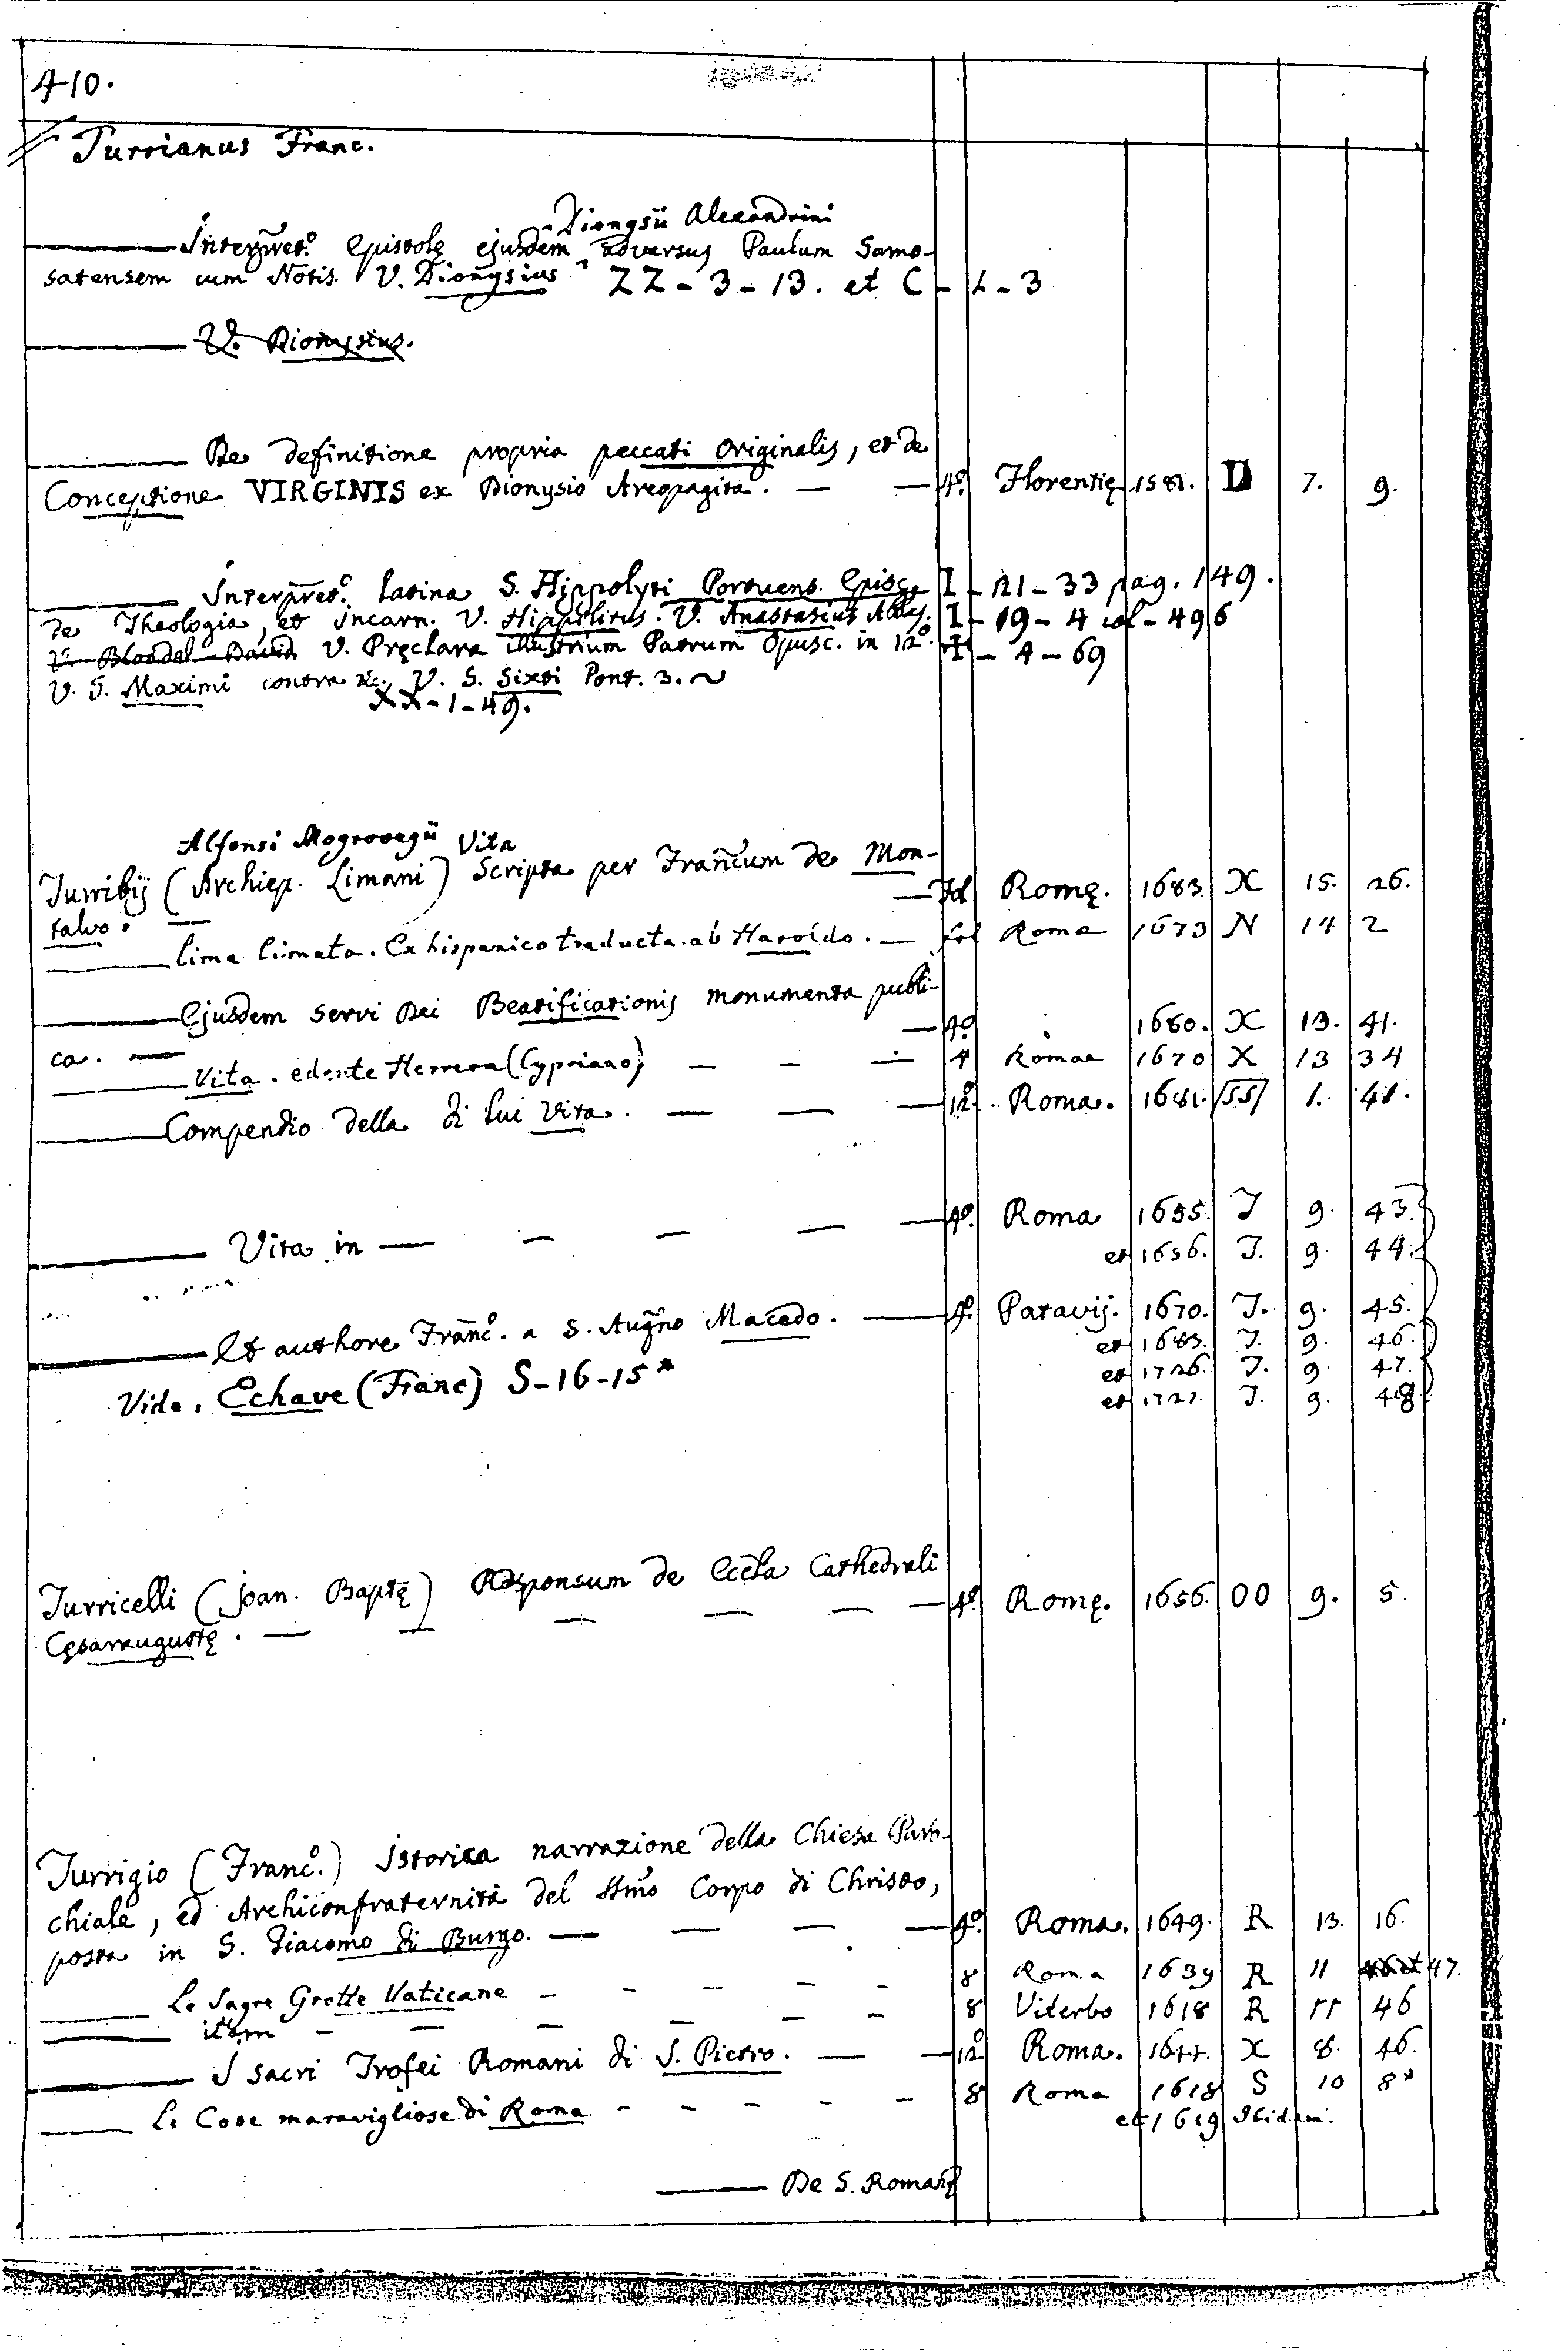 410.
Turrianus Franc.
Dionysii Alexandrini
——— Interpret.º Epistolę ejusdem adversus Paulum Samo-
satensem cum Notis. V. Dionysius ZZ - 3 - 13. et C - L - 3
——— V. Dionysius.
——— De definitione propria peccati Originalis, et de
Conceptione VIRGINIS ex Dionysio Areopagita. — — 4º. Florentię 1581. D 7. 9.
——— Interpret.º latina S. Hippolyti Portuens. Episc. I - 21 - 33 pag. 149.
de Theologia, et Incarn. V. Hippolitus. V. Anastasius Abbas. I - 19 - 4 col - 496
V. Blondel David V. Pręclara illustrium Patrum Opusc. in 12º. I - 4 - 69
V. S. Maximi contra &c. V. S. Sixti Pont. 3. ~
XX - 1 - 49.
Alfonsi Mogrovegii Vita
Turribij (Archiep. Limani) Scripta per Francum de Mon-
talvo. — — Fol Romę. 1683. X 15. 26.
——— lima limata. Ex hispanico traducta ab Haroldo. — fol Roma 1673 N 14 2
——— Ejusdem Servi Dei Beatificationis monumenta publi-
ca. — — 4º 1680. X 13. 41.
——— Vita. edente Herrera (Cypriano) — — — 4 Romae 1670 X 13 34
——— Compendio della di lui Vita. — — — 12º Roma. 1681. SS 1. 41.
——— Vita in — — — — — 4º. Roma 1655. J 9. 43.
et 1656. J. 9. 44.
——— Et authore Franc.º a S. Augño Macedo. — 4º. Patavij. 1670. J. 9. 45.
et 1683. J. 9. 46.
et 1726. J. 9. 47.
et 1727. J. 9. 48.
Vide. Echave (Franc) S - 16 - 15*
Turricelli (Joan. Baptę) Responsum de Eccła Cathedrali
Cęsaraugustę. — — — — — — 4º. Romę. 1656. OO 9. 5.
Turrigio (Franc.º) Istorica narrazione della Chiesa Paro-
chiale, ed Archiconfraternità del SSmo Corpo di Christo,
posta in S. Giacomo di Burgo. — — — — 4º. Roma. 1649. R 13. 16.
——— Le Sagre Grotte Vaticane — — — — — 8 Roma 1639 R 11 46 et 47.
——— item — — — — — — 8 Viterbo 1618 R 11 46
——— I sacri Trofei Romani di S. Pietro. — — 12º Roma. 1644. X 8. 46.
——— Le Cose maravigliose di Roma - - - - - 8 Roma 1618 S 10 8*
et 1619 Ibidem.
——— De S. Romanę